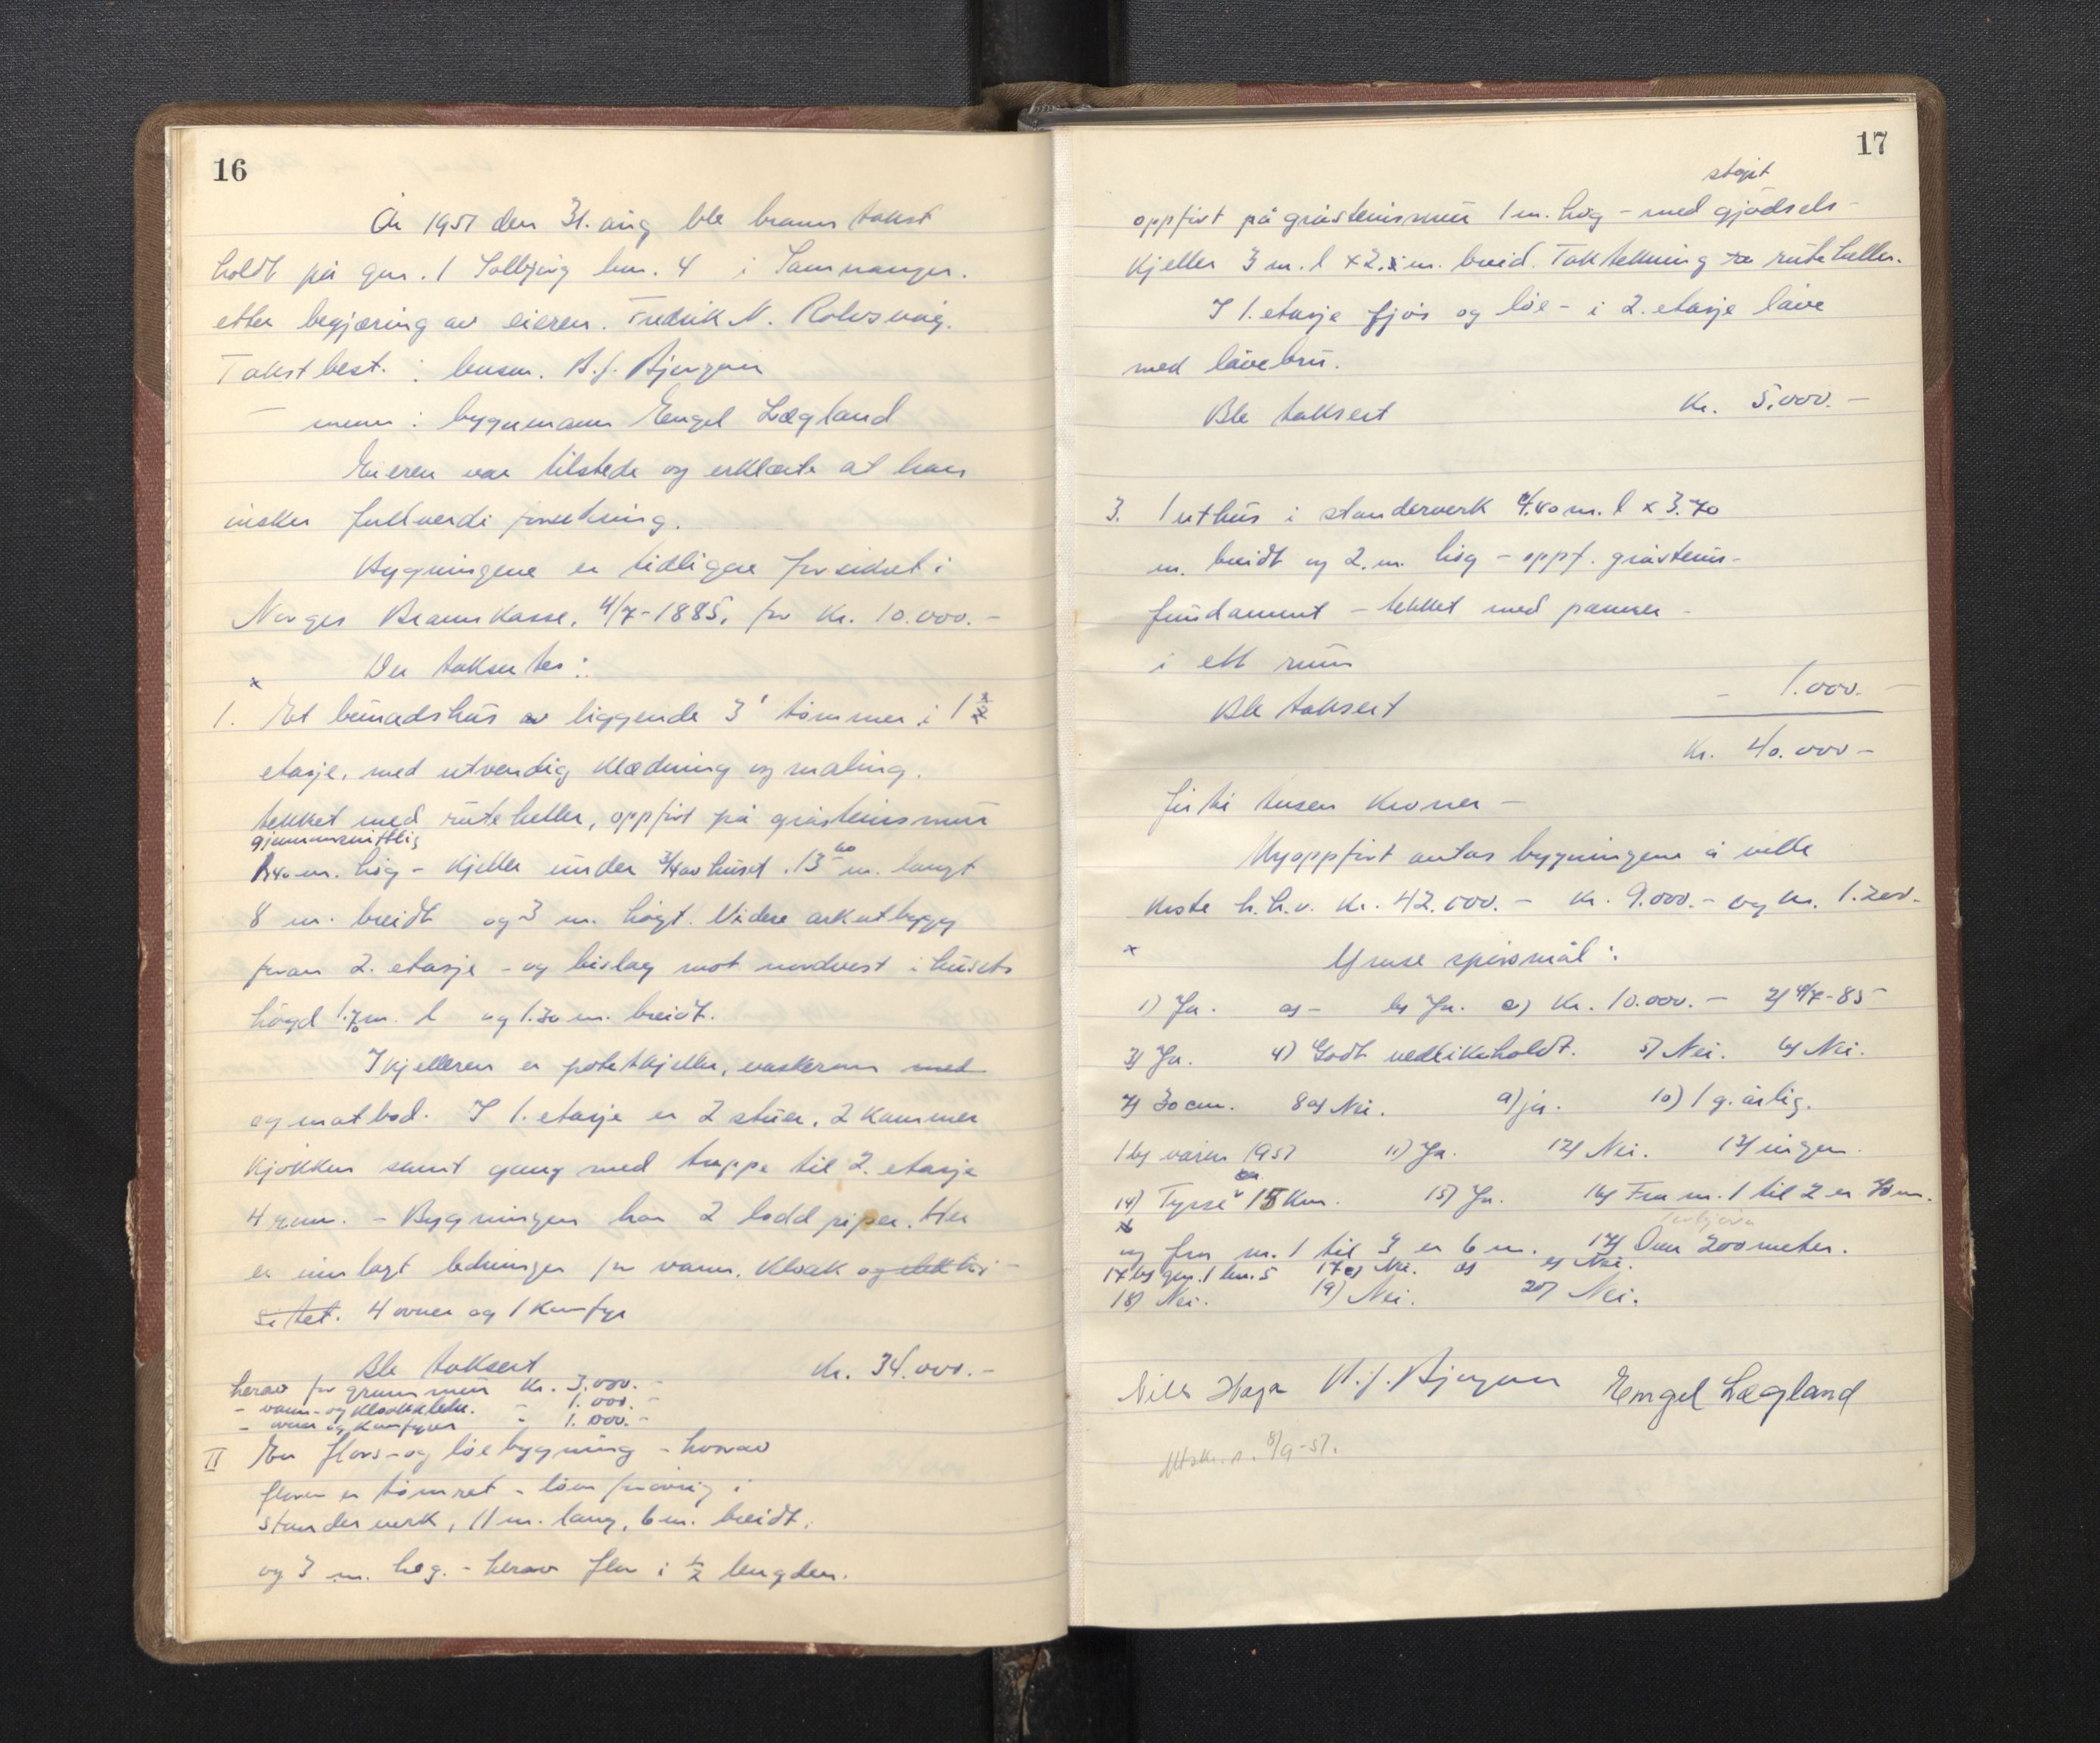 16
År 1951 den 31. aug ble branntakst
holdt på gnr. 1 Solbjørg bnr. 4 i Samnanger.
etter begjæring av eieren. Fredrik N. Rolvsvåg.
Takstbest. : lensm. N.J. Bjørgum
— menn : byggmann Engel Lægland
Eieren var tilstede og erklærte at han
ønsker fullverdi forsikring.
Bygningene er tidligere forsikret i
Norges Brannkasse, 4/7-1885, for kr. 10.000.-
Der taksertes :
1. Et bunadshus av liggende 3" tømmer i 1 ½
etasje, med utvendig klædning og maling.
tekket med ruteheller, oppført på gråsteinsmur
gjennomsnittlig
1,40 m. høg - Kjeller under 3/4 av huset. 13 40 m. langt
8 m. breidt og 3 m. høgt. Videre arkutbygg
foran 2. etasje - og bislag mot nordvest i husets
høgd 1.70 m. l og 1.30 m. breidt.
I kjelleren er potetkjeller, vaskerom med
og matbod. I 1. etasje er 2 stuer, 2 kammer
kjøkken samt gang med trappe til 2. etasje
4 rom. - Bygningen har 2 lodd piper. Her
er innlagt ledninger for vann, kloak og elektri-
sitet. 4 ovner og 1 komfyr
Ble taksert Kr. 34.000.-
herav for grunnmur Kr. 3.000.-
- vann- og kloakkledn. - 1.000.-
- ovner og komfyrer - 1.000.-
II En flors- og løebygning - hvorav
floren er tømret - løen forøvrig i
standerverk, 11 m. lang, 6 m. breidt,
og 3 m. høg. - herav flor i ½ lengden.
17
støpt
oppført på gråsteinsmur 1 m. høg - med gjødsels-
kjeller 3 m. l x 2.5 m. breid. Taktekking ruteheller.
I 1. etasje fjøs og løe - i 2. etasje låve
med låvebru.
Ble taksert Kr. 5.000.-
3. 1 uthus i standerverk 4.40 m. l x 3.70
m. breidt og 2. m. høg - oppf. gråsteins-
fundament - tekket med panner -
i ett rum
Ble taksert - 1.000.-
Kr. 40.000-
førti tusen kroner -
Nyoppført antas bygningene å ville
koste h.h.v. kr. 42.000.- kr. 9.000.- og kr. 1.200.
x spørsmål :
1) Ja. a) - b) Ja. c) Kr. 10.000.- 2) 4/7-85
3) Ja. 4) Godt vedlikeholdt. 5) Nei. 6) Nei.
7) 30 cm. 8 a) Nei. 9) ja. 10) 1 g. årlig.
1 b) våren 1951 11) Ja. 12) Nei. 13) ingen.
ca.
14) Tysse 15 km. 15) Ja. 16) Fra nr. 1 til 2 er 30 m.
og fra nr. 1 til 3 er 6 m. 17) Over 200 meter.
17 b) gnr. 1 bnr. 5 17 c) Nei. d) e) Nei.
18) Nei. 19) Nei. 20) Nei.
Nils Haga N.J. Bjørgum Engel Lægland
Utskr. s. 8/9-51.